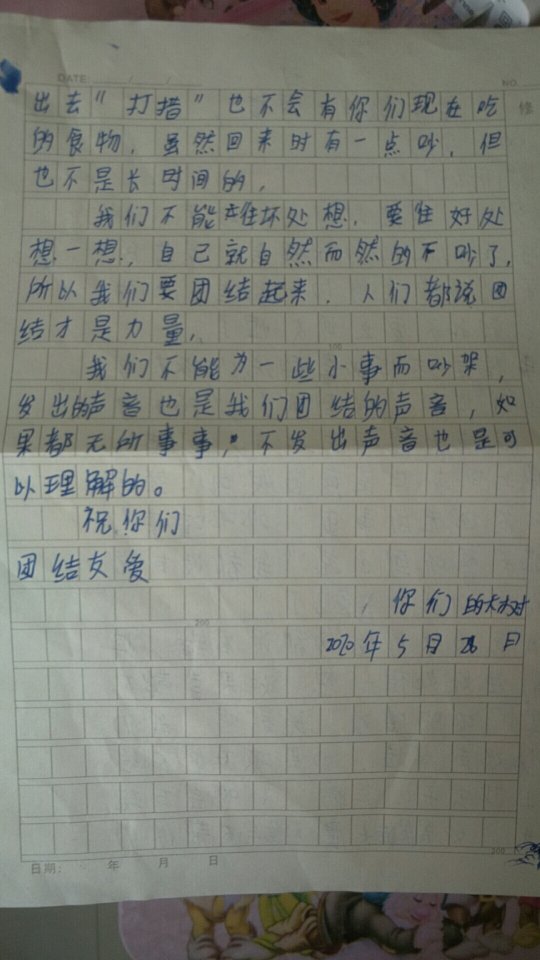 DATE: / / NO.
出去"打措"也不会有你们现在吃
的食物，虽然回来时有一点吵，但
也不是长时间的，
我们不能往坏处想，要往好处
想一想，自己就自然而然的不吵了，
所以我们要团结起来，人们都说团
结才是力量，
100
我们不能为一些小事而吵架，
发出的声音也是我们团结的声音，如
果都无所事事，不发出声音也是可
以理解的。
祝你们
团结友爱
你们的大树
200
2020年5月28日
300
日期： 年 月 日